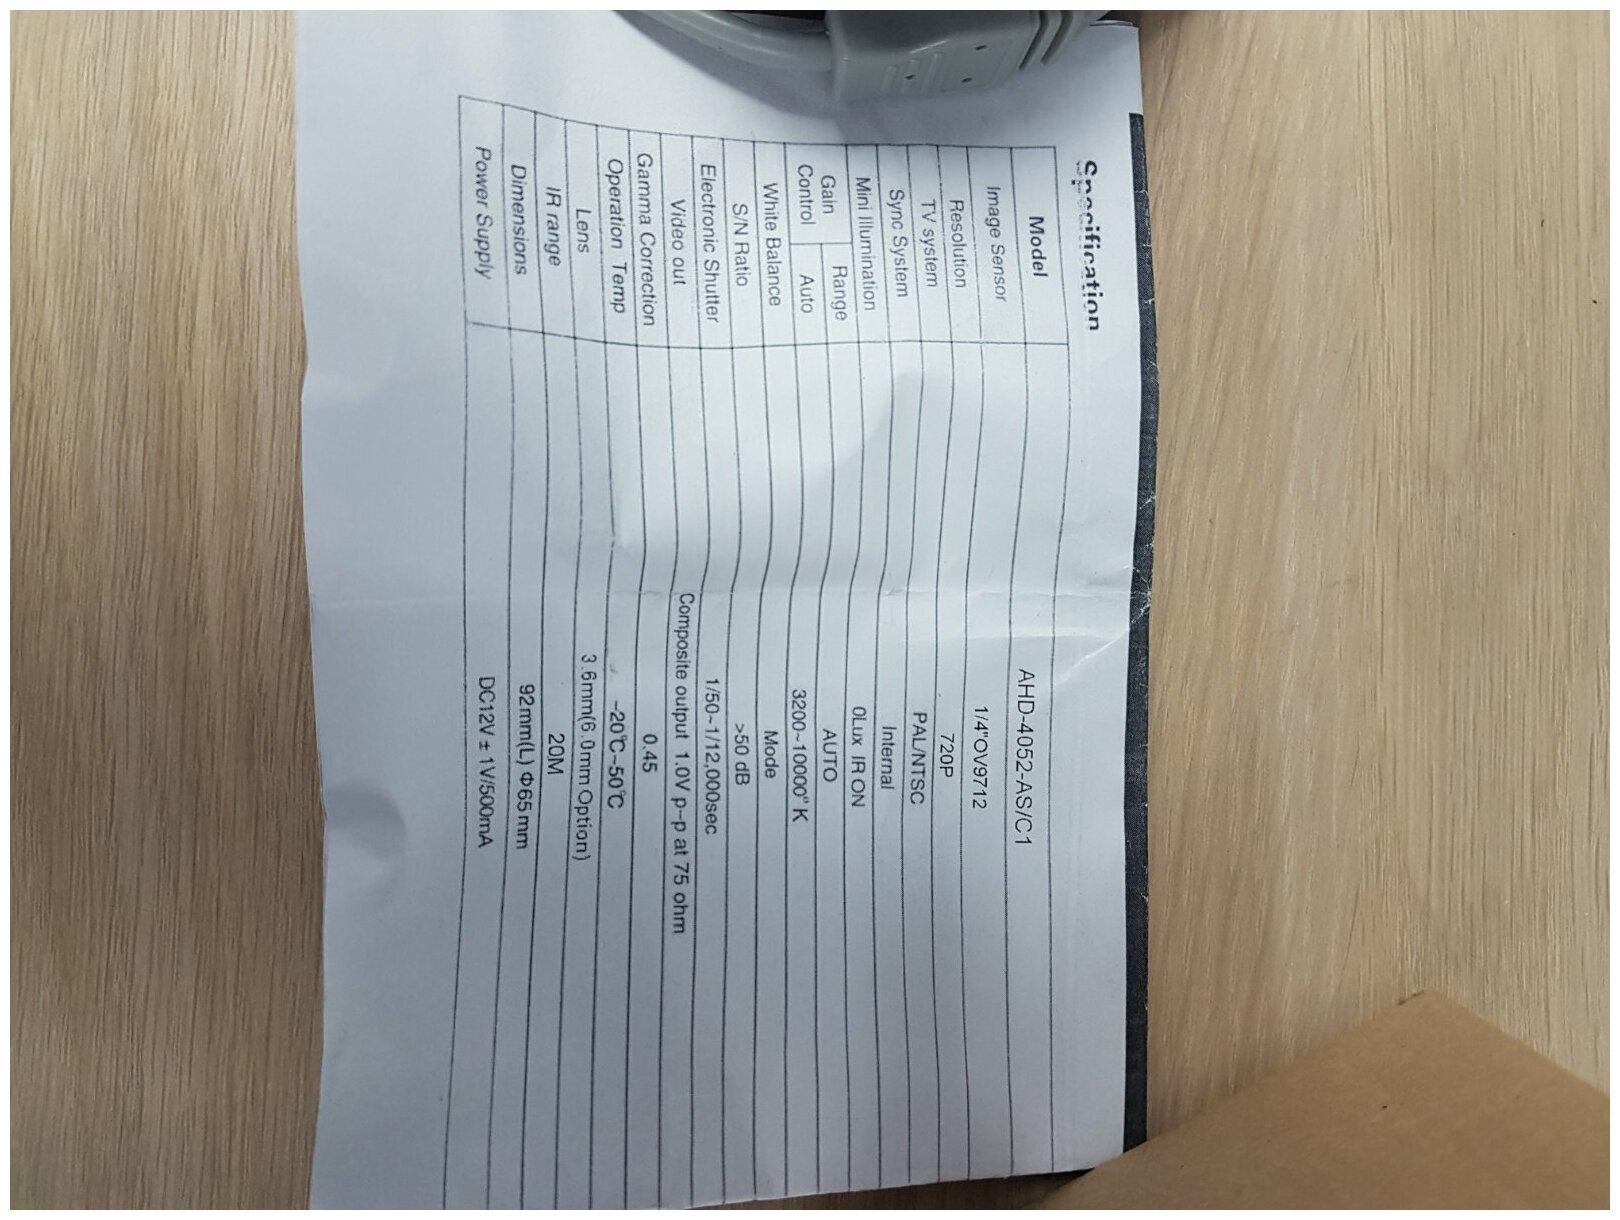 Specification
Model AHD-4052-AS/C1
Image Sensor 1/4"OV9712
Resolution 720P
TV system PAL/NTSC
Sync System Internal
Mini Illumination 0Lux IR ON
Gain Control Range AUTO
Auto 3200~10000°K
White Balance Mode
S/N Ratio >50 dB
Electronic Shutter 1/50~1/12,000sec
Video out Composite output 1.0V p-p at 75 ohm
Gamma Correction 0.45
Operation Temp -20℃~50℃
Lens 3.6mm(6.0mm Option)
IR range 20M
Dimensions 92mm(L) Φ65mm
Power Supply DC12V ± 1V/500mA